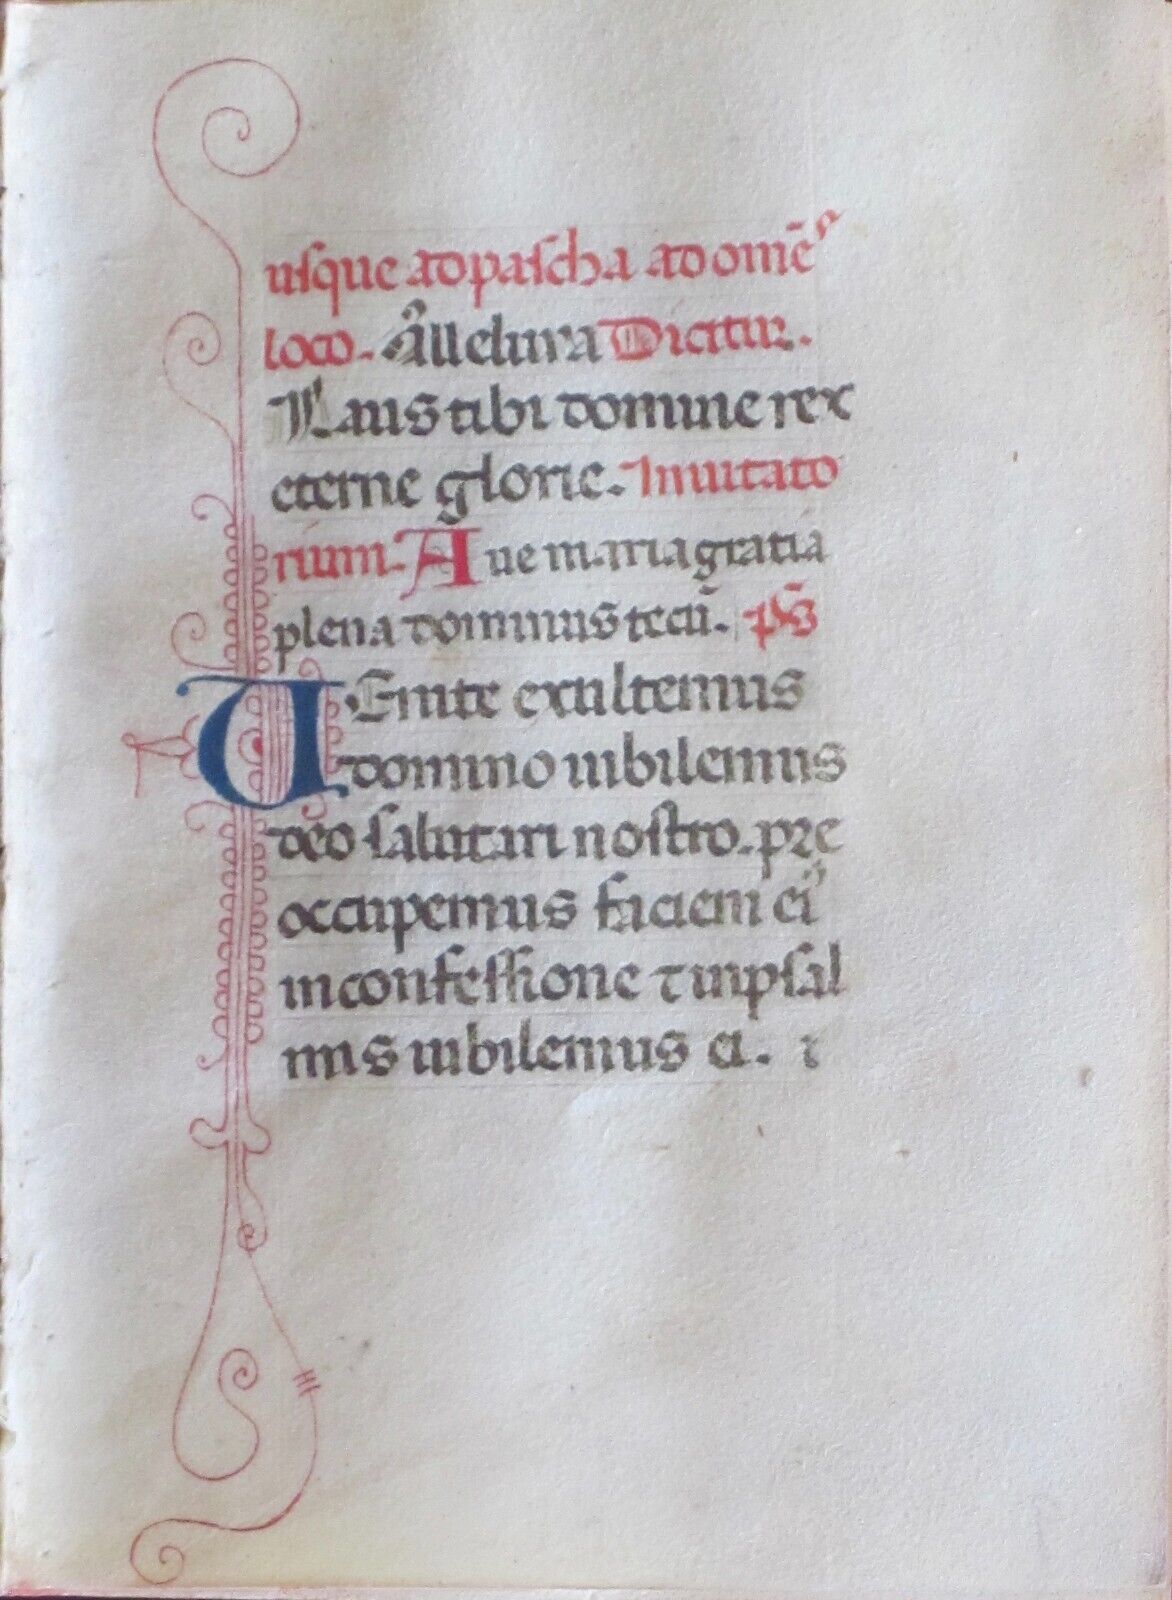 usque ad pascha ad omēs
loco. Alleluya Dicitur.
Laus tibi domine rex
eterne glorie. Inuitato
rium. Aue maria gratia
plena dominus tecū. ps̄
UEnite exultemus
domino iubilemus
deo salutari nostro. pre
occupemus faciem ei᾿
in confessione ⁊ in psal
mis iubilemus ei. ⁊